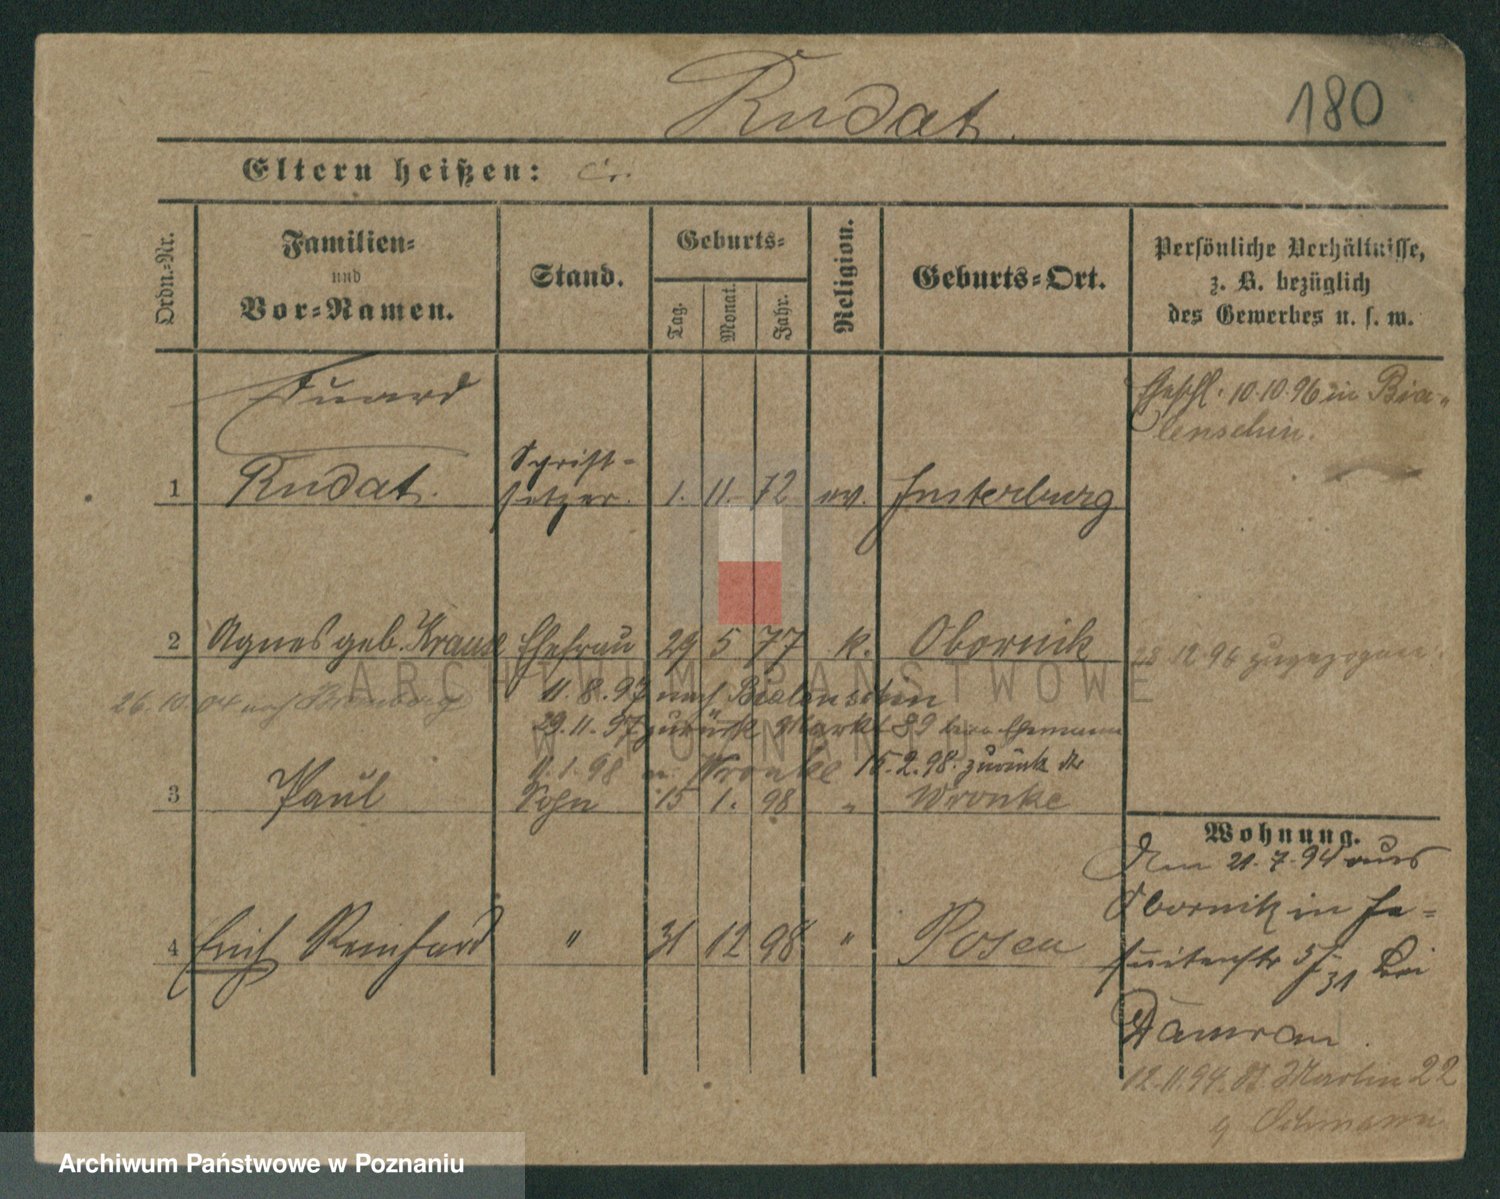 Rudat.
180
Eltern heißen:
Ordn.-Nr.
Familien-
und
Vor-Namen.
Stand.
Geburts-
Tag.
Monat.
Jahr.
Religion.
Geburts-Ort.
Persönliche Verhältnisse,
z. B. bezüglich
des Gewerbes u. s. w.
Eduard
1 Rudat. Schrift-
setzer. 1. 11. 72 ev. Insterburg
Eheschl. 10.10.96 in Bia-
lenschin.
2 Agnes geb. Krause Ehefrau 29 5 77 k. Obornik
28 12 96 zugezogen.
26.10.04 nach Bromberg
11.8.97 nach Bialenschin
29.11.97 zurück Markt 89 beim Ehemann
11.1.98 n. Wronke 15.2.98. zurück
3 Paul Sohn 15 1. 98 " Wronke
4 Erich Reinhard " 31 12 98 " Posen
Wohnung.
Am 21.7.94 aus
Obornik in Je-
suitenstr 5 bei
12.11.94. St. Martin 22
ARCHIWUM PAŃSTWOWE
W POZNANIU
Archiwum Państwowe w Poznaniu